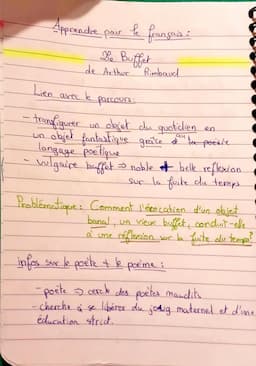 Apprendre pour le français :
Le Buffet
de Arthur Rimbaud
Lien avec le parcours :
- transfigurer un objet du quotidien en
un objet fantastique grâce au la poésie
langage poétique
- vulgaire buffet => noble + belle reflexion
sur la fuite du temps
Problématique : Comment l'évocation d'un objet
banal, un vieux buffet, conduit-elle
à une réflexion sur la fuite du temps?
infos sur le poète + le poème :
- poète => cercle des poètes maudits
- cherche à se libérer du joug maternel et d'une
éducation strict.